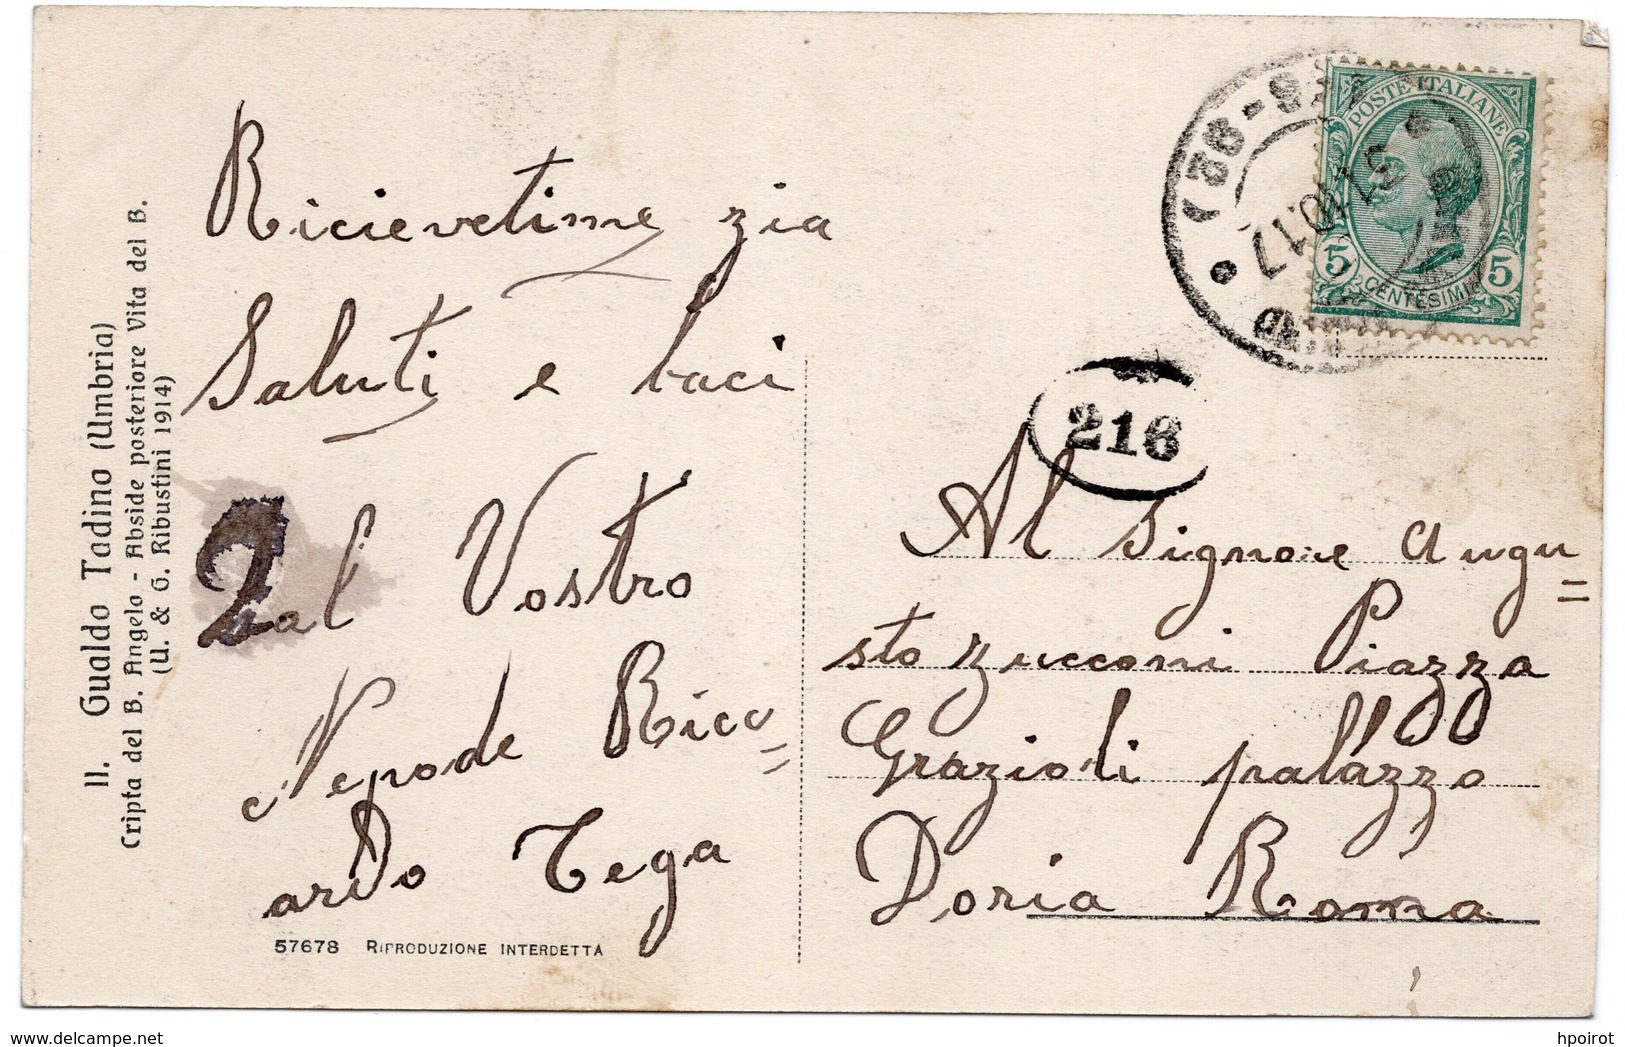 11. Gualdo Tadino (Umbria)
Cripta del B. Angelo - Abside posteriore Vita del B.
(U. & G. Ribustini 1914)
Ricievetime zia
Saluti e baci
Dal Vostro
Nepode Ricc
ardo Tega
57678 RIPRODUZIONE INTERDETTA
POSTE ITALIANE
5 CENTESIMI 5
31.10.17
216
Al Signore Augu=
sto Zucconi Piazza
Grazioli palazzo
Doria Roma
www.delcampe.net
hpoirot